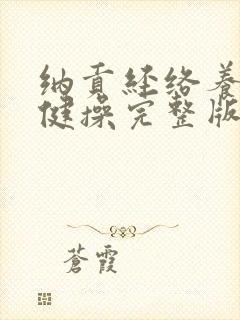 纳贡经络养
健操完整版
苍霞